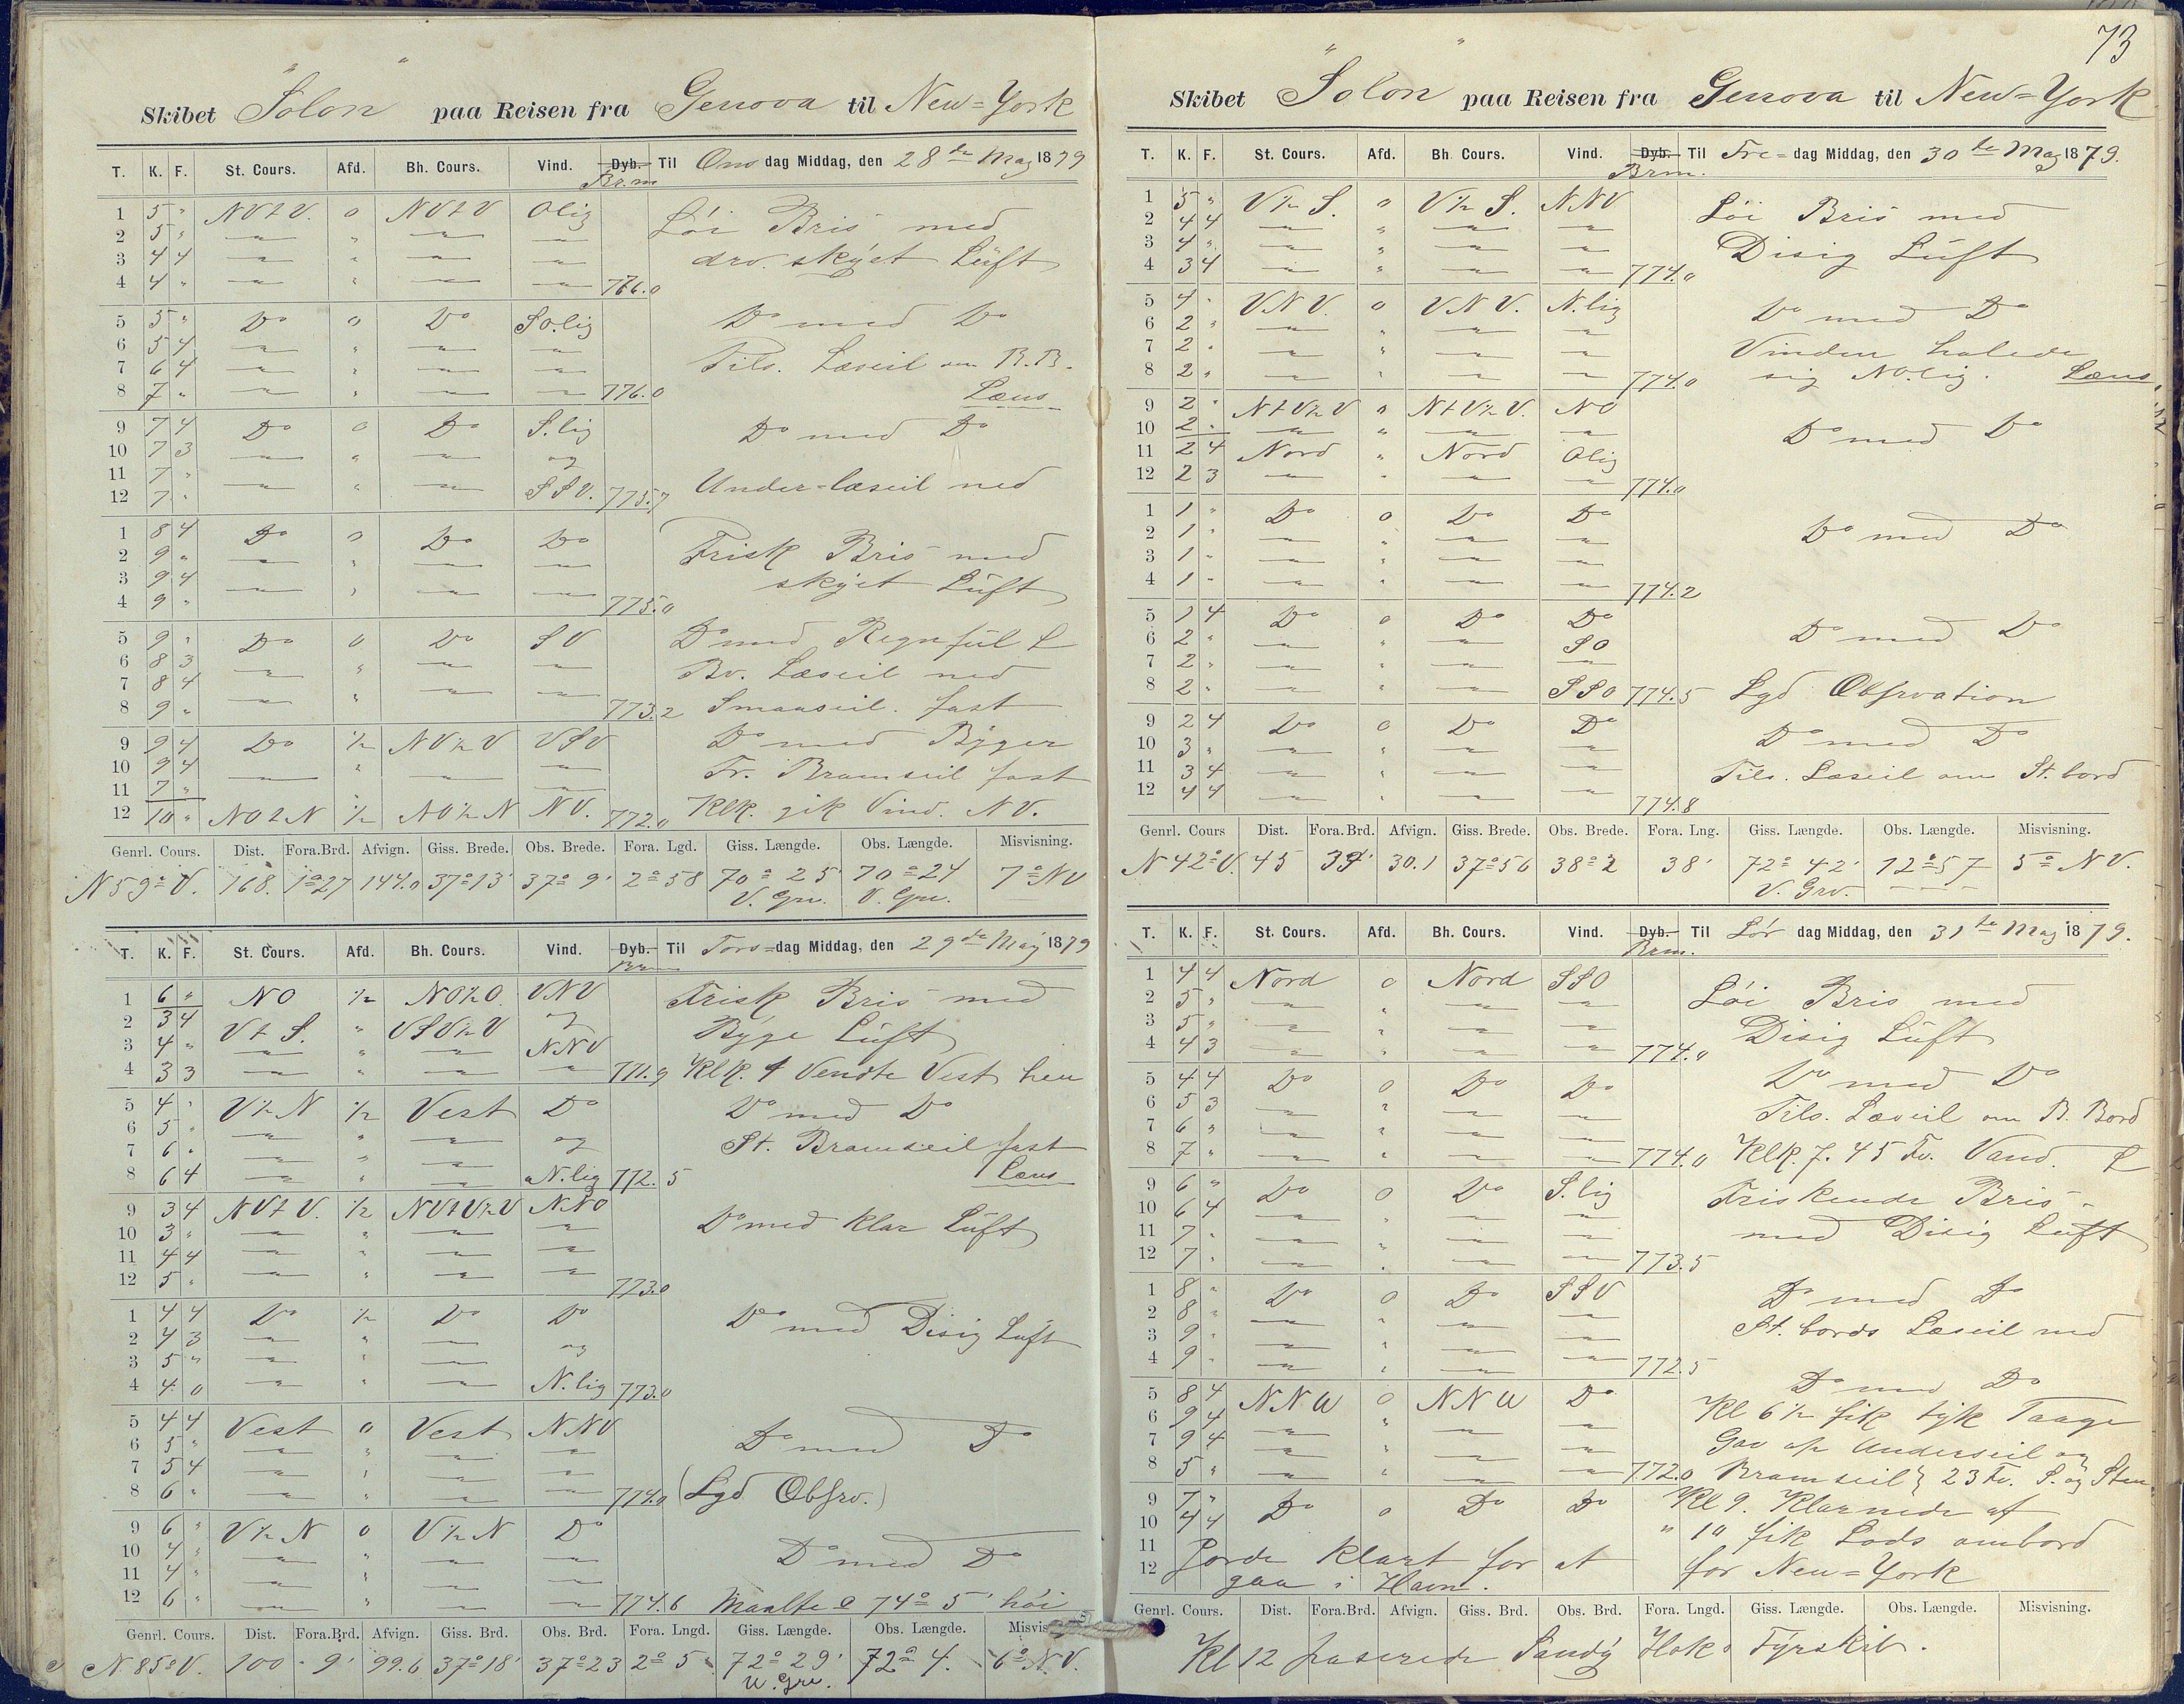 Skibet "Solon" paa Reisen fra Genova til New=York
T. K. F. St. Cours. Afd. Bh. Cours. Vind. Dyb. Til Ons dag Middag, den 28de May 1879
Br.m
1 5 " NVtV. 0 NVtV Olig Löi Bris med
2 5 " — " — —
3 4 4 — " — — drv. skyet Luft
4 4 " — " — — 776.0
5 5 " Do 0 Do SO.lig Do med Do
6 5 4 — " — —
7 6 4 — " — — Tils. Læseil om B.B.
8 7 " — " — — 776.0 Læns
9 7 4 Do 0 Do S.lig Do med Do
10 7 3 — " — og
11 7 " — " — SSV. Under-læseil ned
12 7 " 775.7
1 8 4 Do 0 Do Do Frisk Bris med
2 9 " — " — —
3 9 4 — " — — skyet Luft
4 9 " 775.0
5 9 " Do 0 Do SV Do med Regnful L
6 8 3 — " — — Bv. Læseil ned
7 8 4 — " — —
8 9 " 773.2 Smaaseil. fast
9 9 4 Do ½ NV½V VSV Do med Byger
10 9 4 — " — — Fr. Bramseil fast
11 7 "
12 10 " NOtN ½ NO½N NV. 772.0 Klk. gik Vind. NV.
Genrl. Cours. Dist. Fora.Brd. Afvign. Giss. Brede. Obs. Brede. Fora. Lgd. Giss. Længde. Obs. Længde. Misvisning.
N59°V. 168. 1°27 144.0 37°13' 37°9' 2°58 70°25' 70°24 7°NV
V. Grv. V. Grv.
T. K. F. St. Cours. Afd. Bh. Cours. Vind. Dyb. Til Tors=dag Middag, den 29de May 1879
1 6 " NO ½ NO½O. VNV Frisk Bris med
2 3 4 VtS. " VSV½V og Byge Luft
3 4 " — " — NNV
4 3 3 — " — " 771.9 Klk. 1 Vendte Vest hen
5 4 " V½N ½ Vest Do Do med Do
6 5 " — " — og St. Bramseil fast
7 6 " — " —
8 6 4 — " — N.lig 772.5 Læns
9 3 4 NVtV. ½ NVtV½V NNO Do med klar Luft
10 3 " — " — —
11 4 4 — " — —
12 5 " — " — — 773.0
1 4 4 Do ½ Do Do Do med Disig Luft
2 4 3 — " — og
3 5 " — " —
4 4 0 — " — N.lig 773.0
5 4 4 Vest 0 Vest NNV Do med Do
6 5 " — " — —
7 5 4 — " — —
8 6 " — " — — 774.0 (Lgd Obsrv.)
9 6 " V½N 0 V½N Do
10 4 " — " — — Do med Do
11 4 " — " — —
12 6 " — " — — 774.6 Maalte 74°5' höi
Genrl. Cours. Dist. Fora.Brd. Afvign. Giss. Brd. Obs. Brd. Fora. Lngd. Giss. Længde. Obs. Længde.
N.85°V. 100 9' 99.6 37°18' 37°23 2°5 72°29' 72°4. 6°N.V.
V. Grv.
73
Skibet "Solon" paa Reisen fra Genova til New=York
T. K. F. St. Cours. Afd. Bh. Cours. Vind. Dyb. Til Fre=dag Middag, den 30te May 1879.
Brm.
1 5 " V½S. 0 V½S. NNV Löi Bris med
2 4 4 — " — —
3 4 " — " — — Disig Luft
4 3 4 — " — — 774.0
5 4 " VNV. 0 VNV. N.lig Do med Do
6 2 " — " — —
7 2 " — " — — Vinden halede
8 2 " — " — — 774.0 sig NO.lig. Læns
9 2 " NtV½V " NtV½V. NO
10 2 " — " — — Do med Do
11 2 4 Nord " Nord Olig
12 2 3 — " — — 774.0
1 1 " Do 0 Do Do
2 1 " — " — — Do med Do
3 1 " — " — —
4 1 " — " — — 774.2
5 1 4 Do 0 Do Do
6 2 " — " — SO Do med Do
7 2 " — " — —
8 2 " — " — SSO 774.5 Lgd Obsrvation
9 2 4 Do 0 Do Do
10 3 " — " — — Do med Do
11 3 4 — " — — Tils. Læseil om St. bord
12 4 4 — " — — 774.8
Genrl. Cours Dist. Fora.Brd. Afvign. Giss. Brede. Obs. Brede. Fora. Lng. Giss. Længde. Obs. Længde. Misvisning.
N42°V. 45 34' 30.1 37°56 38°2 38' 72°42' 72°57 5°NV.
V. Grv.
T. K. F. St. Cours. Afd. Bh. Cours. Vind. Dyb. Til Lör dag Middag, den 31te May 1879.
Brm.
1 4 4 Nord 0 Nord SSO Löi Bris med
2 5 " — " — —
3 5 " — " — — Disig Luft
4 4 3 — " — — 774.0
5 4 4 Do 0 Do Do Do med Do
6 5 3 — " — — Tils. Læseil om B. Bord
7 6 " — " — —
8 7 " — " — — 774.0 Klk. 7.45 Fv. Vand. L
9 6 " Do 0 Do S.lig Friskende Bris
10 6 4 — " — —
11 7 " — " — — med Disig Luft
12 7 " — " — — 773.5
1 8 " Do 0 Do SSV Do med Do
2 8 " — " — — St. bords Læseil ned
3 9 " — " — —
4 9 " — " — — 772.5
5 8 4 NNV 0 NNV Do Do med Do
6 9 4 — " — — Kl 6½ fik tyk Taage
7 9 4 — " — — Gav op Underseil og
8 5 " — " — — 772.0 Bramseil} 23 Fv. S. og Sten
9 7 " Do 0 Do Do Kl 9. Klarnede af
10 4 4 " 10 fik Lods ombord
11 Gjorde klart for at for New=York
12 gaa i Havn.
Genrl. Cours. Dist. Fora.Brd. Afvign. Giss. Brd. Obs. Brd. Fora. Lngd. Giss. Længde. Obs. Længde. Misvisning.
Kl 12 paserede Sandy Hoks Fyrskib.